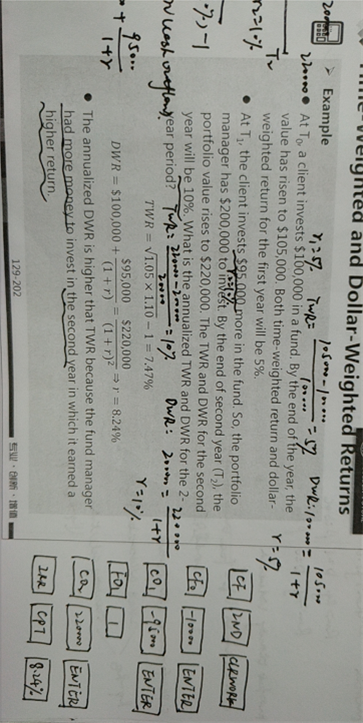 Time-Weighted and Dollar-Weighted Returns
Example
r₁=5%
TWR= 105000-100000 / 100000 =5%
DWR:100000= 105000 / 1+r
r=5%
• At T₀, a client invests $100,000 in a fund. By the end of the year, the
value has risen to $105,000. Both time-weighted return and dollar-
weighted return for the first year will be 5%.
• At T₁, the client invests $95,000 more in the fund. So, the portfolio
manager has $200,000 to invest. By the end of second year (T₂), the
portfolio value rises to $220,000. The TWR and DWR for the second
year will be 10%. What is the annualized TWR and DWR for the 2-
year period?
TWR: 220000-200000 / 200000 =10%
DWR: 200000= 220000 / 1+r
r=10%
TWR = √1.05 × 1.10 − 1 = 7.47%
DWR = $100,000 + $95,000 / (1 + r) = $220,000 / (1 + r)² ⇒ r = 8.24%
• The annualized DWR is higher that TWR because the fund manager
had more money to invest in the second year in which it earned a
higher return.
129-202
专业 · 创新 · 增值
+ 95000 / 1+r
CF 2ND CLRWORK
CF0 -100000 ENTER
C01 -95000 ENTER
F01 1
C02 220000 ENTER
IRR CPT 8.24%